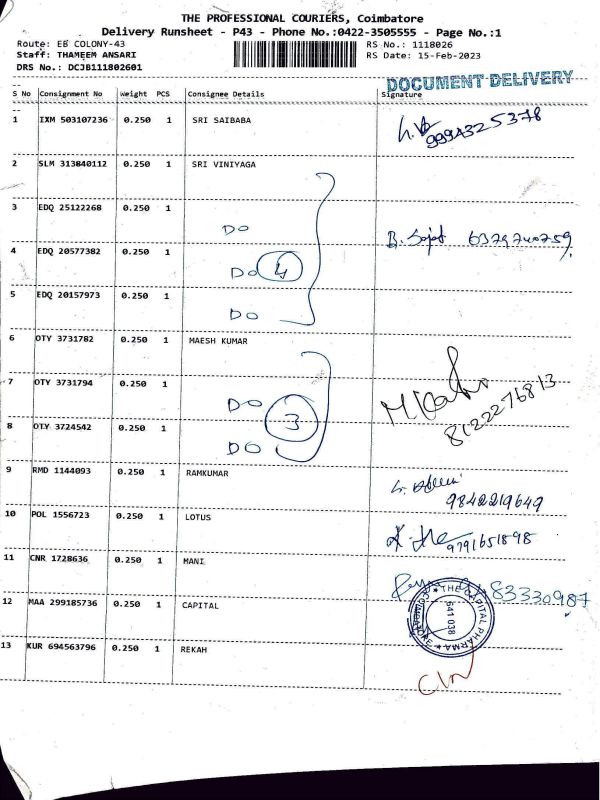 THE PROFESSIONAL COURIERS, Coimbatore
Delivery Runsheet - P43 - Phone No.:0422-3505555 - Page No.:1
Route: EB COLONY-43
RS No.: 1118026
Staff: THAMEEM ANSARI
RS Date: 15-Feb-2023
DRS No.: DCJB111802601
DOCUMENT DELIVERY
S No Consignment No Weight PCS Consignee Details Signature
1 IXM 503107236 0.250 1 SRI SAIBABA
9994325378
2 SLM 313840112 0.250 1 SRI VINIYAGA
3 EDQ 25122268 0.250 1
DO
6379740759
4 EDQ 20577382 0.250 1
DO 4
5 EDQ 20157973 0.250 1
DO
6 OTY 3731782 0.250 1 MAESH KUMAR
7 OTY 3731794 0.250 1
DO
8122276813
8 OTY 3724542 0.250 1
3
DO
9 RMD 1144093 0.250 1 RAMKUMAR
9842219649
10 POL 1556723 0.250 1 LOTUS
9791651898
11 CNR 1728636 0.250 1 MANI
83330987
12 MAA 299185736 0.250 1 CAPITAL
THE CAPITAL PHARMA
COIMBATORE
641 038
13 KUR 694563796 0.250 1 REKAH